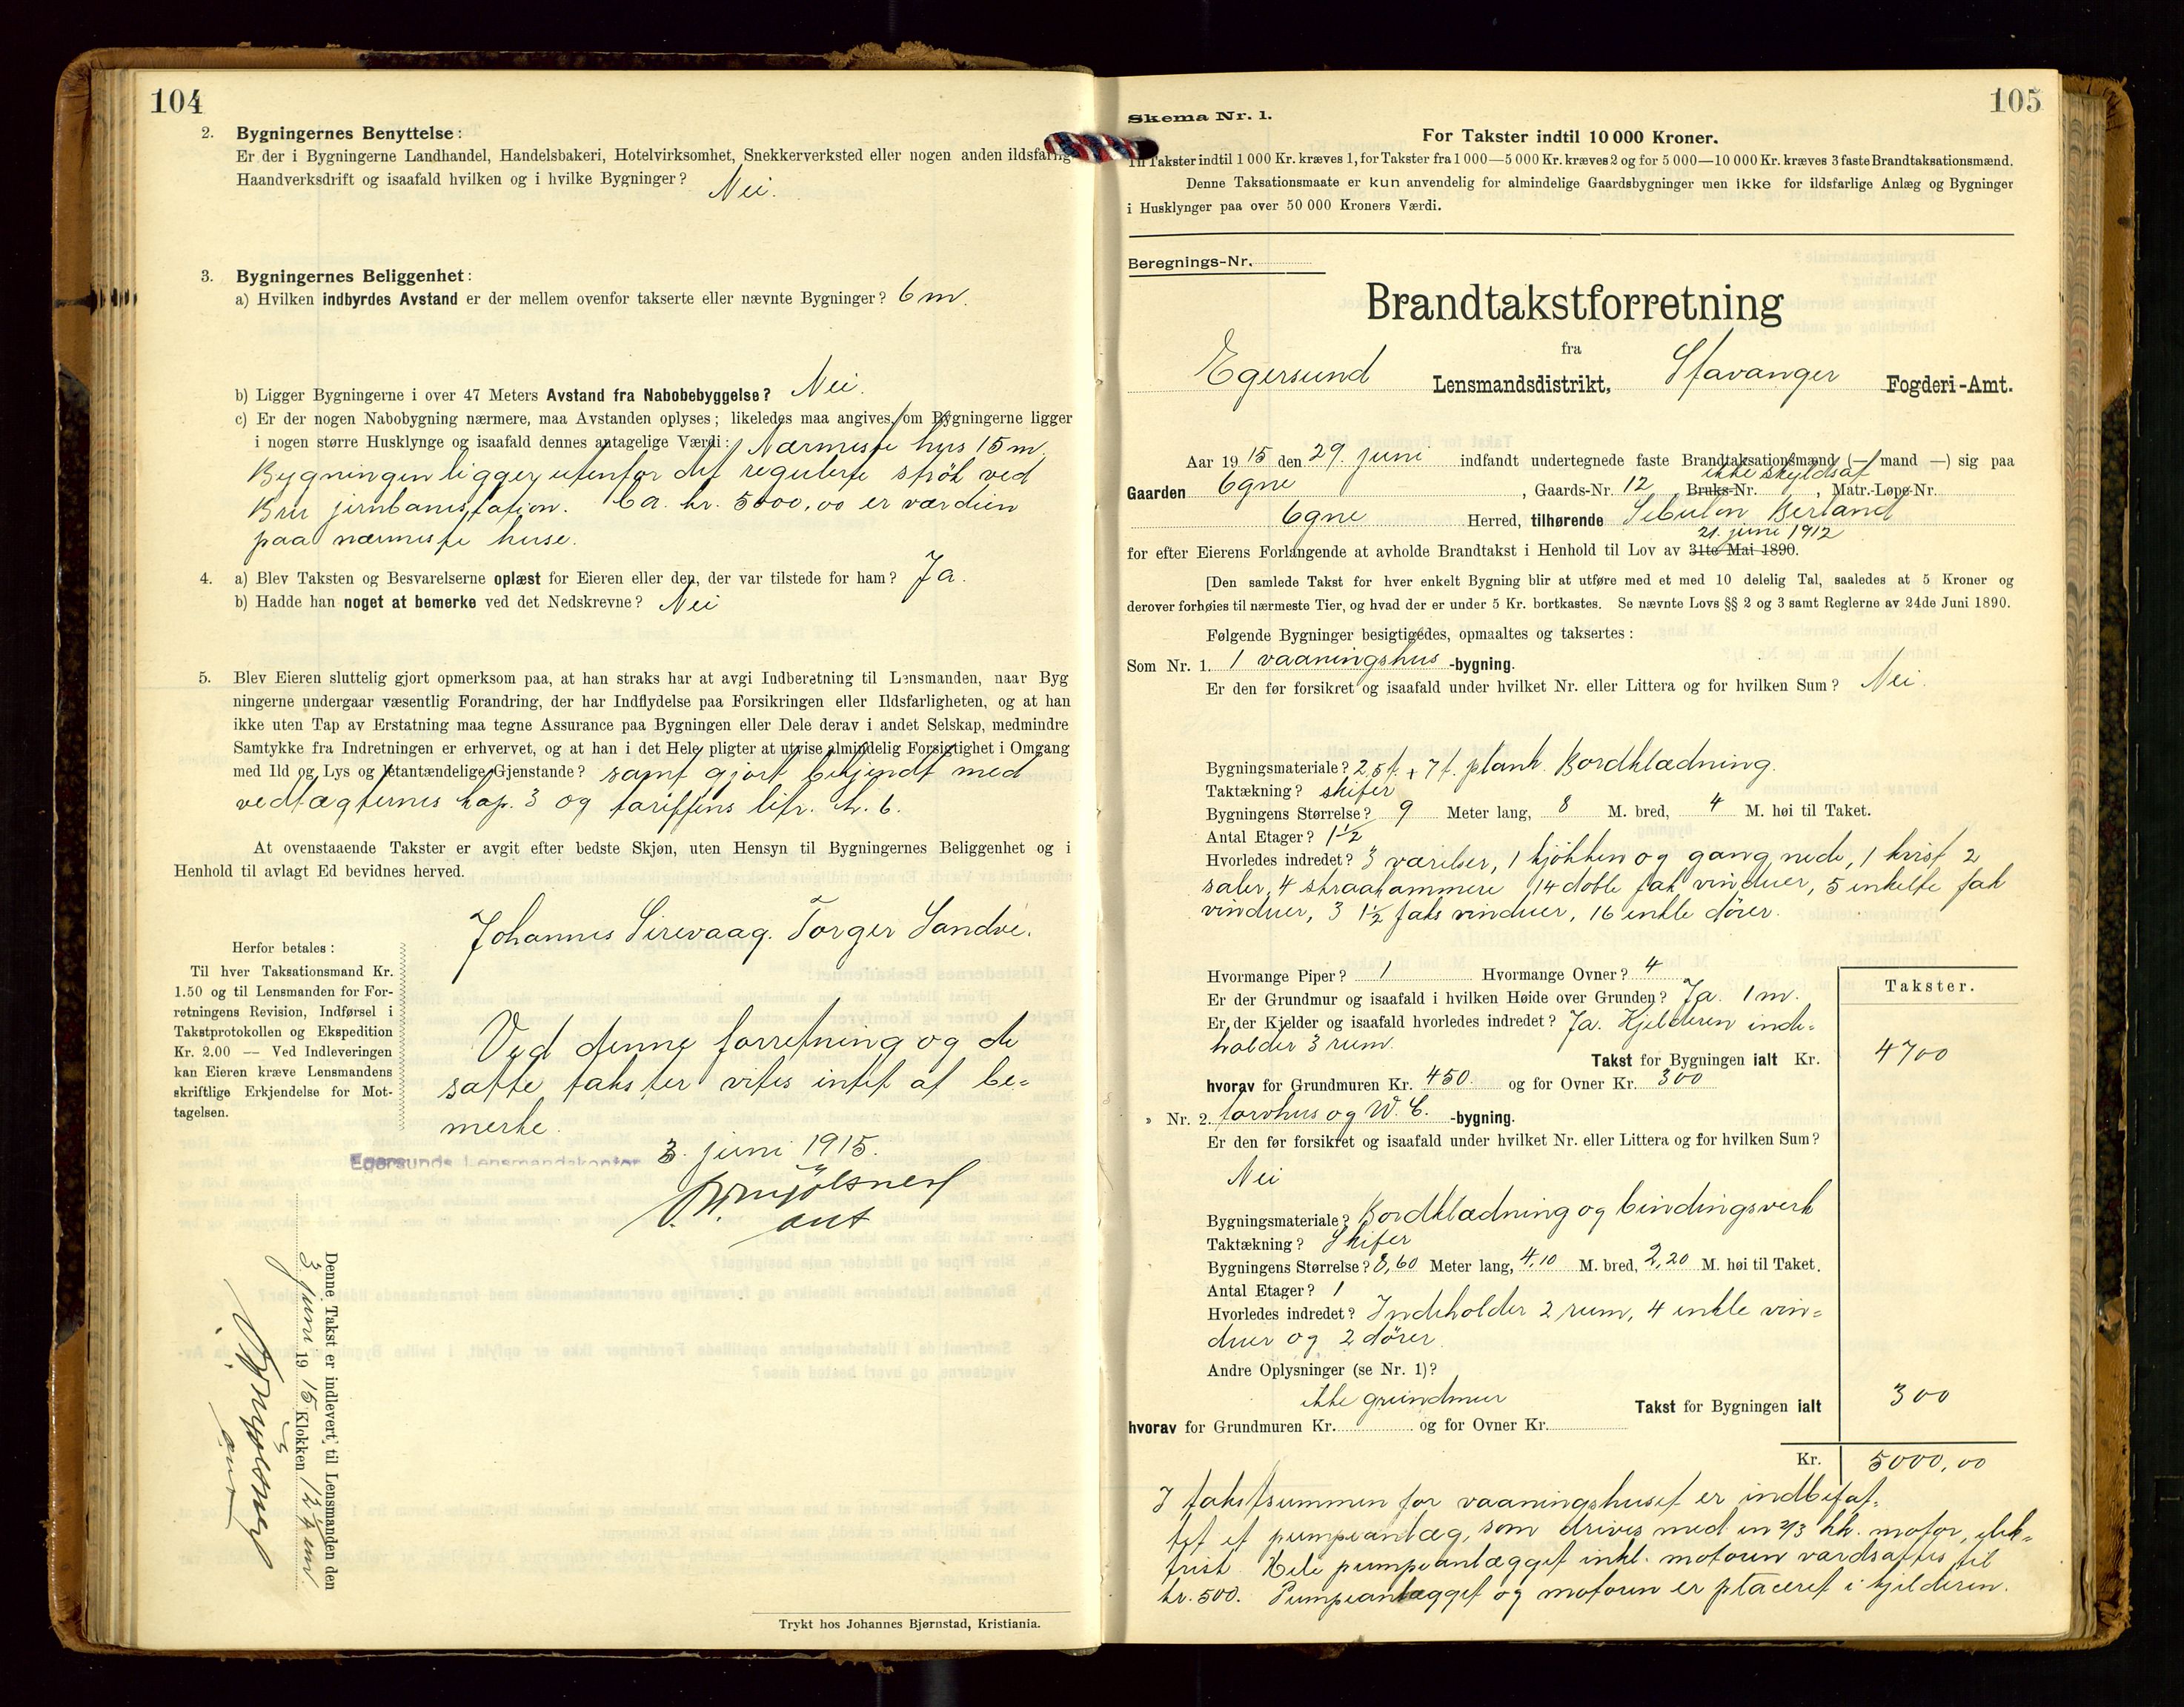 104
2. Bygningernes Benyttelse:
Er der i Bygningerne Landhandel, Handelsbakeri, Hotelvirksomhet, Snekkerverksted eller nogen anden ildsfarlig
Haandverksdrift og isaafald hvilken og i hvilke Bygninger? Nei.
3. Bygningernes Beliggenhet:
a) Hvilken indbyrdes Avstand er der mellem ovenfor takserte eller nævnte Bygninger? 6 m.
b) Ligger Bygningerne i over 47 Meters Avstand fra Nabobebyggelse? Nei.
c) Er der nogen Nabobygning nærmere, maa Avstanden oplyses; likeledes maa angives, om Bygningerne ligger
i nogen større Husklynge og isaafald dennes antagelige Værdi: Nærmeste hus 15 m.
Bygningen ligger utenfor det regulerte strøk ved
Brus jernbanestation. Ca. kr. 5000,00 er værdien
paa nærmeste huse.
4. a) Blev Taksten og Besvarelserne oplæst for Eieren eller den, der var tilstede for ham? Ja.
b) Hadde han noget at bemerke ved det Nedskrevne? Nei
5. Blev Eieren sluttelig gjort opmerksom paa, at han straks har at avgi Indberetning til Lensmanden, naar Byg
ningerne undergaar væsentlig Forandring, der har Indflydelse paa Forsikringen eller Ildsfarligheten, og at han
ikke uten Tap av Erstatning maa tegne Assurance paa Bygningen eller Dele derav i andet Selskap, medmindre
Samtykke fra Indretningen er erhvervet, og at han i det Hele pligter at utvise almindelig Forsigtighet i Omgang
med Ild og Lys og letantændelige Gjenstande? samt gjort bekjendt med
vedtægternes kap. 3 og tariffens litr. h. 6.
At ovenstaaende Takster er avgit efter bedste Skjøn, uten Hensyn til Bygningernes Beliggenhet og i
Henhold til avlagt Ed bevidnes herved.
Johannes Sirevaag. Torger Sandve.
Herfor betales:
Til hver Taksationsmand Kr.
1.50 og til Lensmanden for For-
retningens Revision, Indførsel i
Takstprotokollen og Ekspedition
Kr. 2.00 — Ved Indleveringen
kan Eieren kræve Lensmandens
skriftlige Erkjendelse for Mot-
tagelsen.
Ved denne forretning og de
satte takster vites intet at be-
merke.
Egersunds Lensmandskontor 3. juni 1915.
ass
Denne Takst er indlevert til Lensmanden den
3. juni 1915 Klokken 12 
Trykt hos Johannes Bjørnstad, Kristiania.
105
Skema Nr. 1.
For Takster indtil 10 000 Kroner.
Til Takster indtil 1 000 Kr. kræves 1, for Takster fra 1 000—5 000 Kr. kræves 2 og for 5 000—10 000 Kr. kræves 3 faste Brandtaksationsmænd.
Denne Taksationsmaate er kun anvendelig for almindelige Gaardsbygninger men ikke for ildsfarlige Anlæg og Bygninger
i Husklynger paa over 50 000 Kroners Værdi.
Beregnings-Nr.
Brandtakstforretning
fra
Egersund Lensmandsdistrikt, Stavanger Fogderi-Amt.
Aar 1915 den 29. juni indfandt undertegnede faste Brandtaksationsmænd (— mand —) sig paa
ikke skyldsat
Gaarden Ogne, Gaards-Nr. 12, Bruks-Nr. , Matr.-Løpe-Nr.
Ogne Herred, tilhørende Sebulon Berland
21. juni 1912
for efter Eierens Forlangende at avholde Brandtakst i Henhold til Lov av 31te Mai 1890.
[Den samlede Takst for hver enkelt Bygning blir at utføre med et med 10 delelig Tal, saaledes at 5 Kroner og
derover forhøies til nærmeste Tier, og hvad der er under 5 Kr. bortkastes. Se nævnte Lovs §§ 2 og 3 samt Reglerne av 24de Juni 1890.
Følgende Bygninger besigtigedes, opmaaltes og taksertes:
Som Nr. 1. 1 vaaningshus -bygning.
Er den før forsikret og isaafald under hvilket Nr. eller Littera og for hvilken Sum? Nei.
Bygningsmateriale? 2,5 t. + 7 t. plank. Bordklædning.
Taktækning? skifer
Bygningens Størrelse? 9 Meter lang, 8 M. bred, 4 M. høi til Taket.
Antal Etager? 1 1/2
Hvorledes indredet? 3 værelser, 1 kjøkken og gang nede, 1 kvist 2
saler, 4 straakammere, 14 doble fak vinduer, 5 enkelte fak
vinduer, 3 1/2 faks vinduer, 16 enkle dører.
Hvormange Piper? 1 Hvormange Ovner? 4
Er der Grundmur og isaafald i hvilken Høide over Grunden? Ja. 1 m.
Er der Kjelder og isaafald hvorledes indredet? Ja. Kjelderen inde-
holder 3 rum.
Takster.
Takst for Bygningen ialt Kr. 4700
hvorav for Grundmuren Kr. 450. og for Ovner Kr. 300
» Nr. 2. torvhus og W. C. -bygning.
Er den før forsikret og isaafald under hvilket Nr. eller Littera og for hvilken Sum?
Nei
Bygningsmateriale? Bordklædning og bindingsverk
Taktækning? Skifer
Bygningens Størrelse? 8,60 Meter lang, 4,10 M. bred, 2,20 M. høi til Taket.
Antal Etager? 1
Hvorledes indredet? Indeholder 2 rum, 4 enkle vin-
duer og 2 dører.
Andre Oplysninger (se Nr. 1)?
ikke grundmur
Takst for Bygningen ialt 300
hvorav for Grundmuren Kr. og for Ovner Kr.
Kr. 5000,00
I takstsummen for vaaningshuset er indbefat-
tet et pumpeanlæg, som drives med en 2/3 hk. motor, elek-
trisk. Hele pumpeanlægget inkl. motoren værdsættes til
kr. 500. Pumpeanlægget og motoren er placeret i kjelderen.